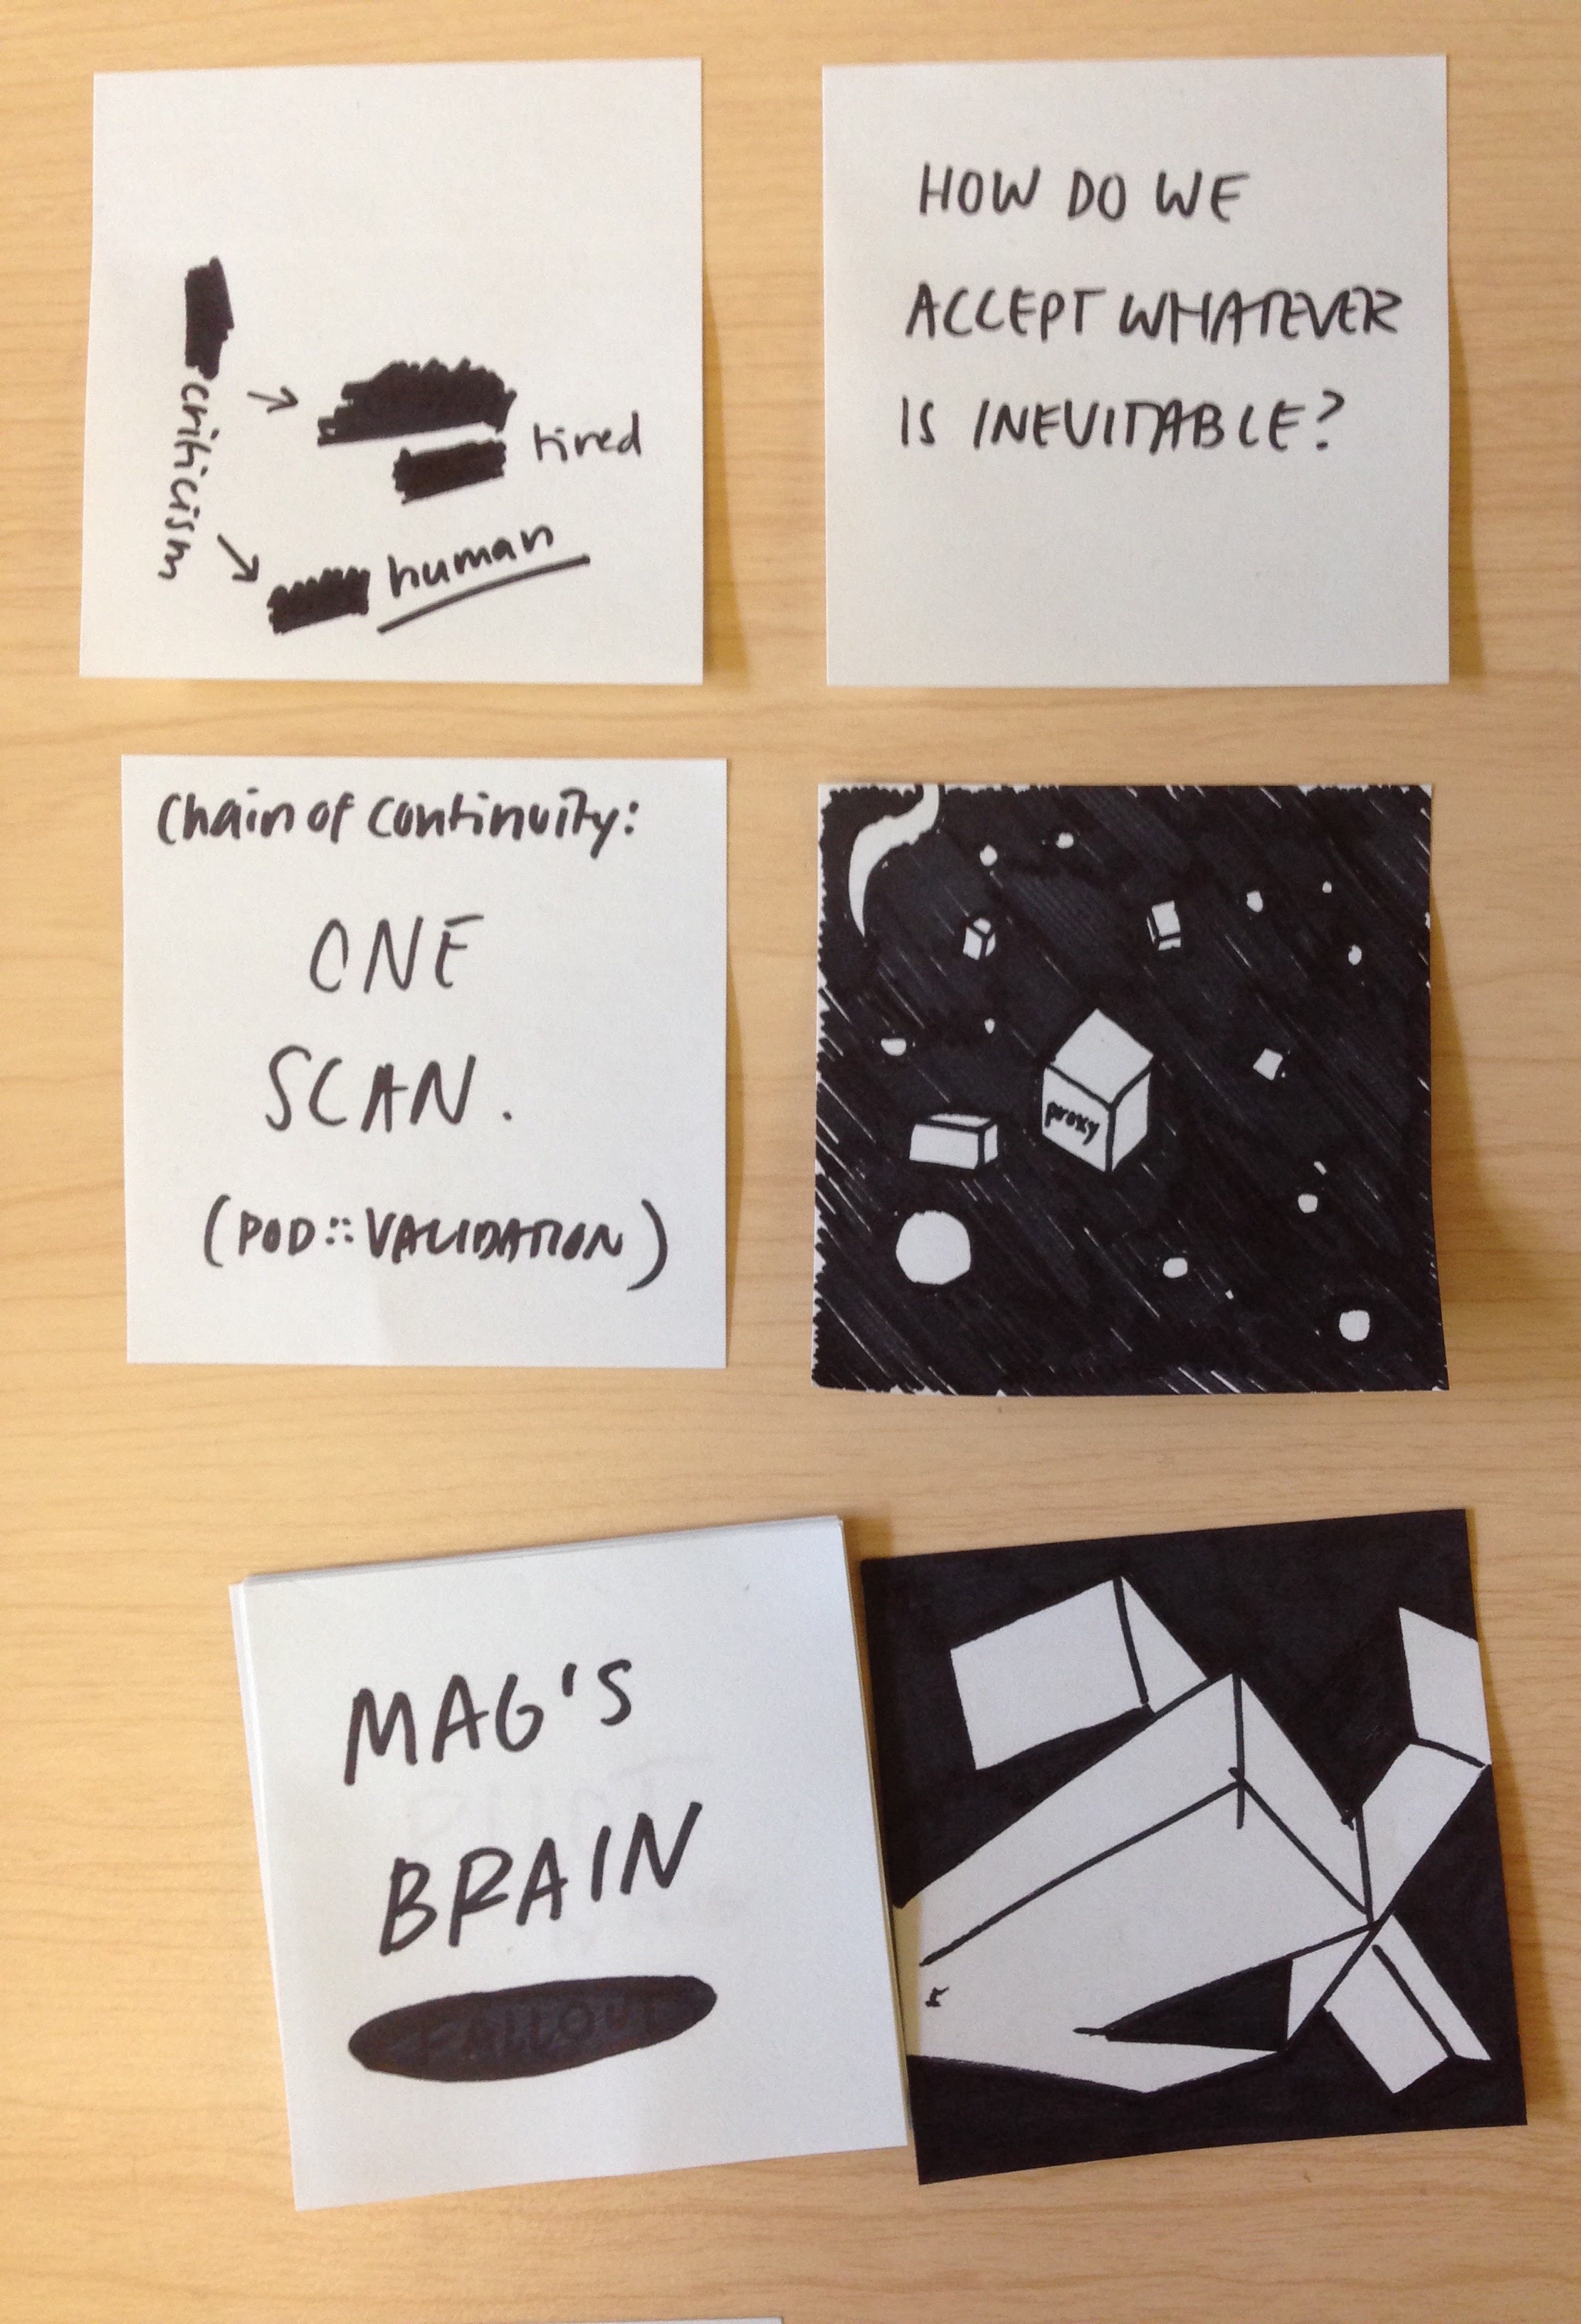 criticism
tired
human
HOW DO WE
ACCEPT WHATEVER
IS INEVITABLE?
Chain of continuity:
ONE
SCAN.
(POD::VALIDATION)
proxy
MAG'S
BRAIN
FALLOUT